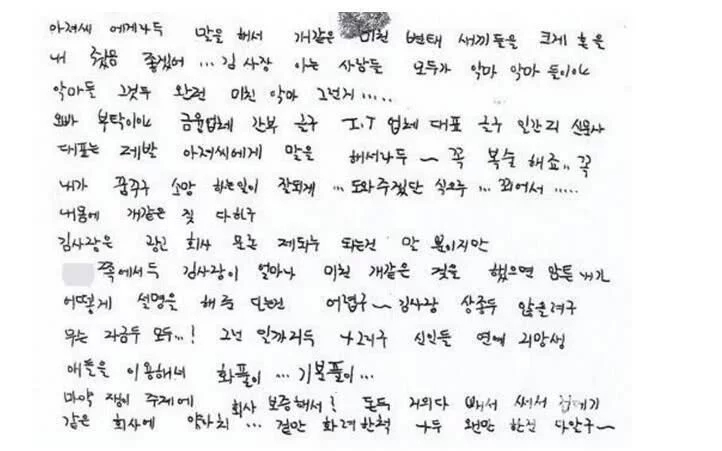 아저씨 에게나두 말을 해서 개같은 미친 변태 새끼들을 크게 혼을
내 줬음 좋겠어 ... 김 사장 아는 사람들 모두가 악마 악마 들이야
악마들 그것두 완전 미친 악마 그런거 .....
오빠 부탁이야 금융업체 간부 글구 I.T 업체 대표 글구 인간리 신문사
대표는 제발 아저씨에게 말을 해서나두 ~ 꼭 복수 해죠.. 꼭
내가 꿈꾸구 소망 하는일이 잘되게 ... 도와주겠단 식으루 ... 꾀어서 .....
내몸에 개같은 짓 다하구
김사장은 광고 회사 모든 제의는 되는건 말 뿐이지만
쪽에서두 김사장이 얼마나 미친 개같은 짓을 했으면 암튼 내가
어떻게 설명을 해 준 단는건 어렵구 ~ 김사장 상종두 않을려구
무는 자금두 모두 ...! 그건 일까지두 그리구 신인들 연예 지망생
애들을 이용해서 화풀이 ... 기분풀이 ...
마약 쟁이 주제에 회사 보증해서! 돈두 거의다 빼서 써서 껍데기
같은 회사에 양아치 ... 겉만 화려한척 나두 왠만 한건 다알구 ~